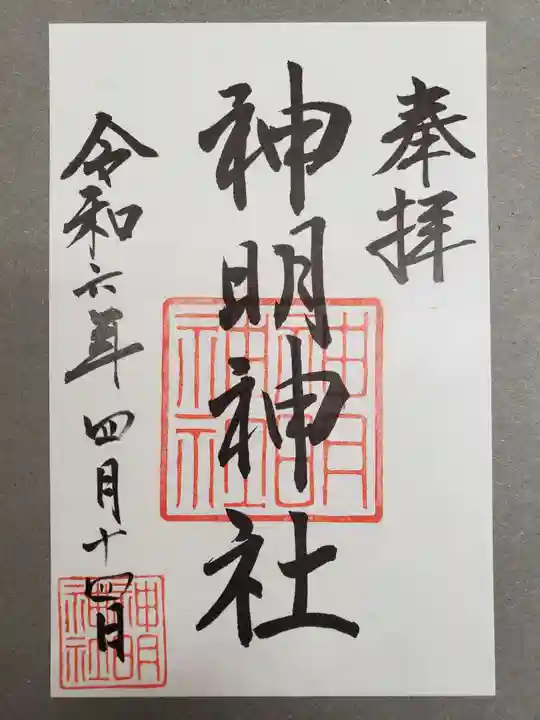 奉拝
神明神社
令和六年四月十四日
神明
神社
神明
神社